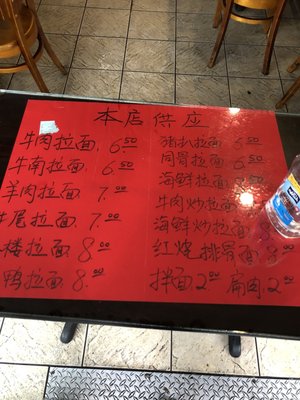 本店供应
牛肉拉面 6.50
牛南拉面 6.50
羊肉拉面 7.00
牛尾拉面 7.00
楼拉面 8.00
鸭拉面 8.00
猪扒拉面 6.50
同骨拉面 6.50
海鲜拉面
牛肉炒拉面
海鲜炒拉面
红烧排骨面 8.00
拌面 2.00 扁肉 2.00